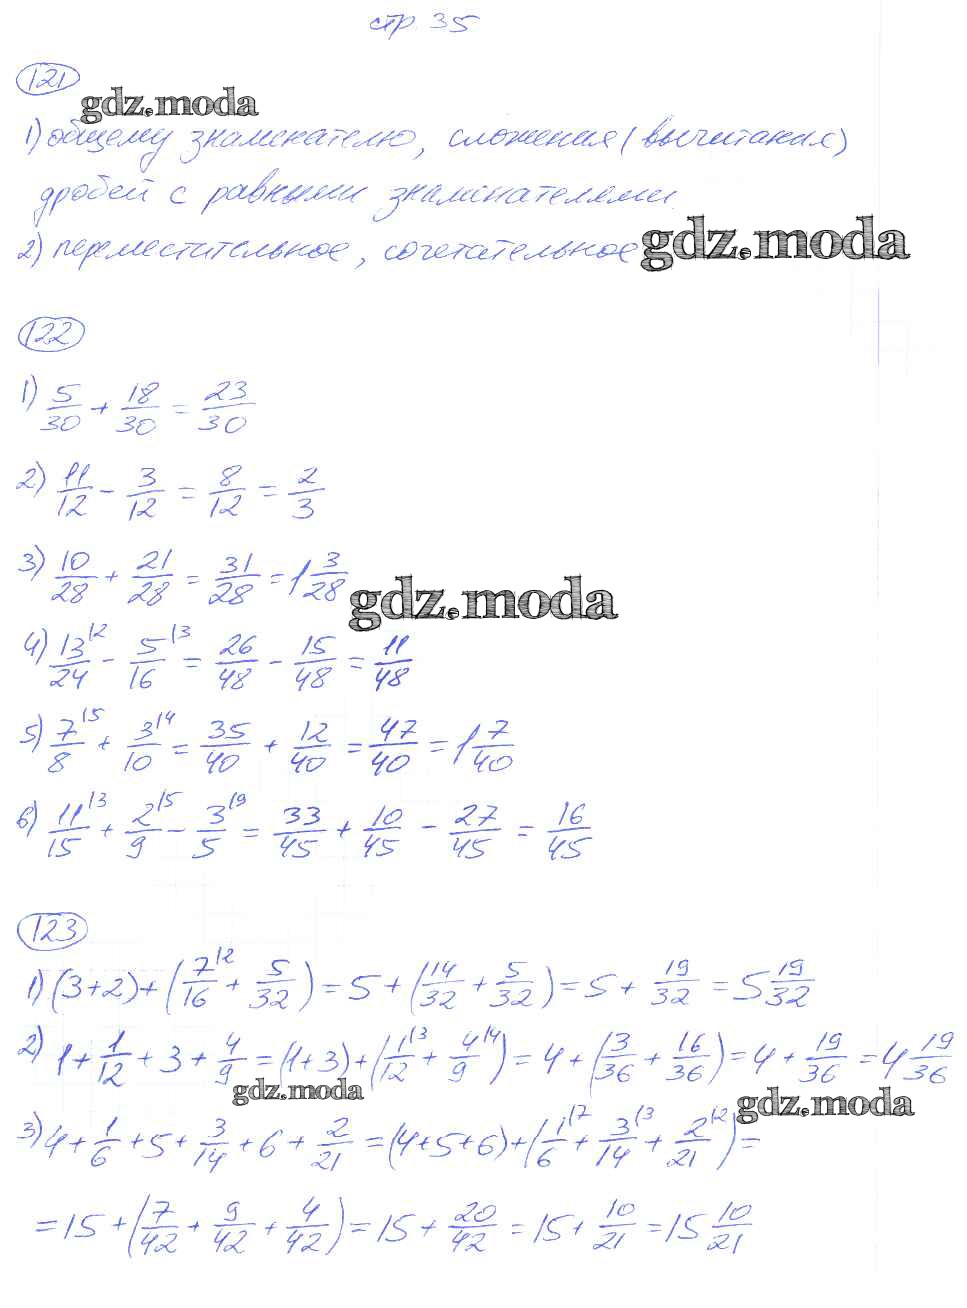 стр. 35
121
gdz.moda
1) общему знаменателю, сложения (вычитания)
дробей с равными знаменателями.
2) переместительное, сочетательное
gdz.moda
122
1) 5/30 + 18/30 = 23/30
2) 11/12 - 3/12 = 8/12 = 2/3
3) 10/28 + 21/28 = 31/28 = 1 3/28
gdz.moda
4) 13/24 |2 - 5/16 |3 = 26/48 - 15/48 = 11/48
5) 7/8 |5 + 3/10 |4 = 35/40 + 12/40 = 47/40 = 1 7/40
6) 11/15 |3 + 2/9 |5 - 3/5 |9 = 33/45 + 10/45 - 27/45 = 16/45
123
1) (3+2)+(7/16 |2 + 5/32) = 5 + (14/32 + 5/32) = 5 + 19/32 = 5 19/32
2) 1 + 1/12 + 3 + 4/9 = (1+3) + (1/12 |3 + 4/9 |4) = 4 + (3/36 + 16/36) = 4 + 19/36 = 4 19/36
gdz.moda
gdz.moda
3) 4 + 1/6 + 5 + 3/14 + 6 + 2/21 = (4+5+6) + (1/6 |7 + 3/14 |3 + 2/21 |2) =
= 15 + (7/42 + 9/42 + 4/42) = 15 + 20/42 = 15 + 10/21 = 15 10/21